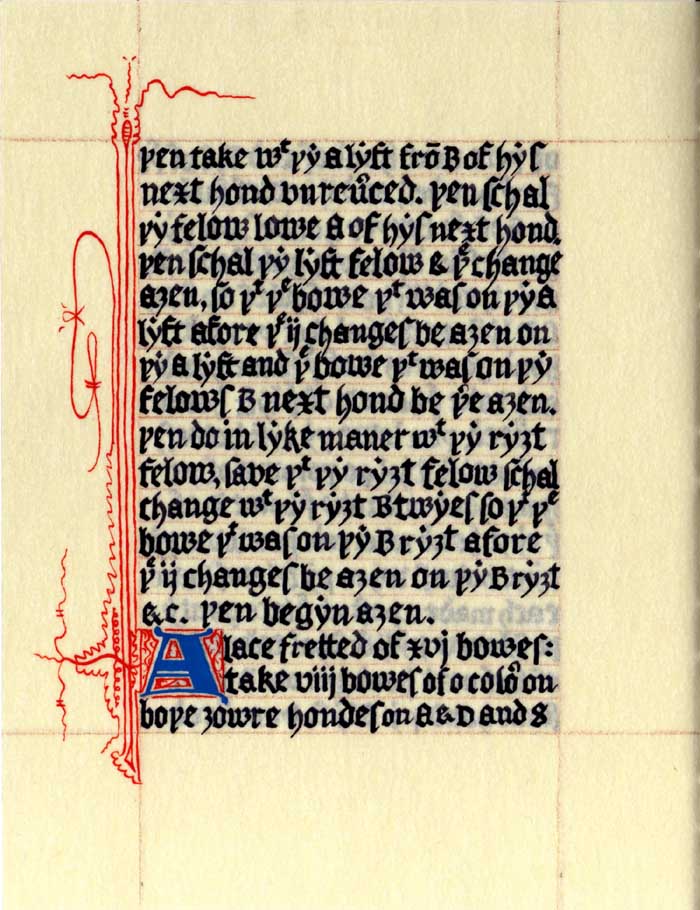 þen take wᵗ þẏ a lẏft frō B of hẏſ
next hond vnreũced. þen ſchal
þẏ felow lowe A of hẏſ next hond.
þen ſchal þẏ lẏft felow & þᵉ change
aȝen, ſo þᵗ þᵉ bowe þᵗ waſ on þẏ a
lẏft afore þᵉ ij changeſ be aȝen on
þẏ a lẏft and þᵉ bowe þᵗ waſ on þẏ
felowſ B next hond be þᵉe aȝen.
þen do in lẏke maner wᵗ þẏ rẏȝt
felow, ſave þᵗ þẏ rẏȝt felow ſchal
change wᵗ þẏ rẏȝt B twẏeſ ſo þᵗ þᵉ
bowe þᵗ waſ on þẏ B rẏȝt afore
þᵉ ij changeſ be aȝen on þẏ B rẏȝt
&c. þen begẏn aȝen.
A lace fretted of xvj boweſ:
take viij boweſ of o coloᵘ on
boþe ȝowre hondeſ on A & D and S